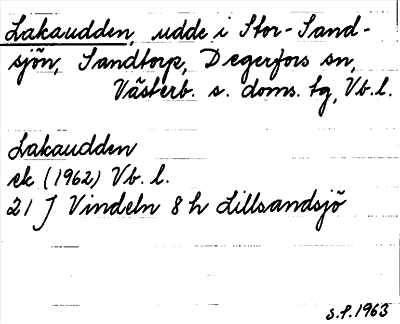 Lakaudden, udde i Stor-Sand-
sjön, Sandtorp, Degerfors sn,
Västerb. s. doms. tg, Vb.l.
Lakaudden
ek (1962) Vb. l.
21 J Vindeln 8 h Lillsandsjö
S.P. 1963